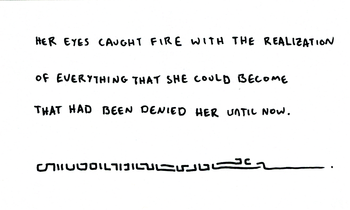 HER EYES CAUGHT FIRE WITH THE REALIZATION
OF EVERYTHING THAT SHE COULD BECOME
THAT HAD BEEN DENIED HER UNTIL NOW.